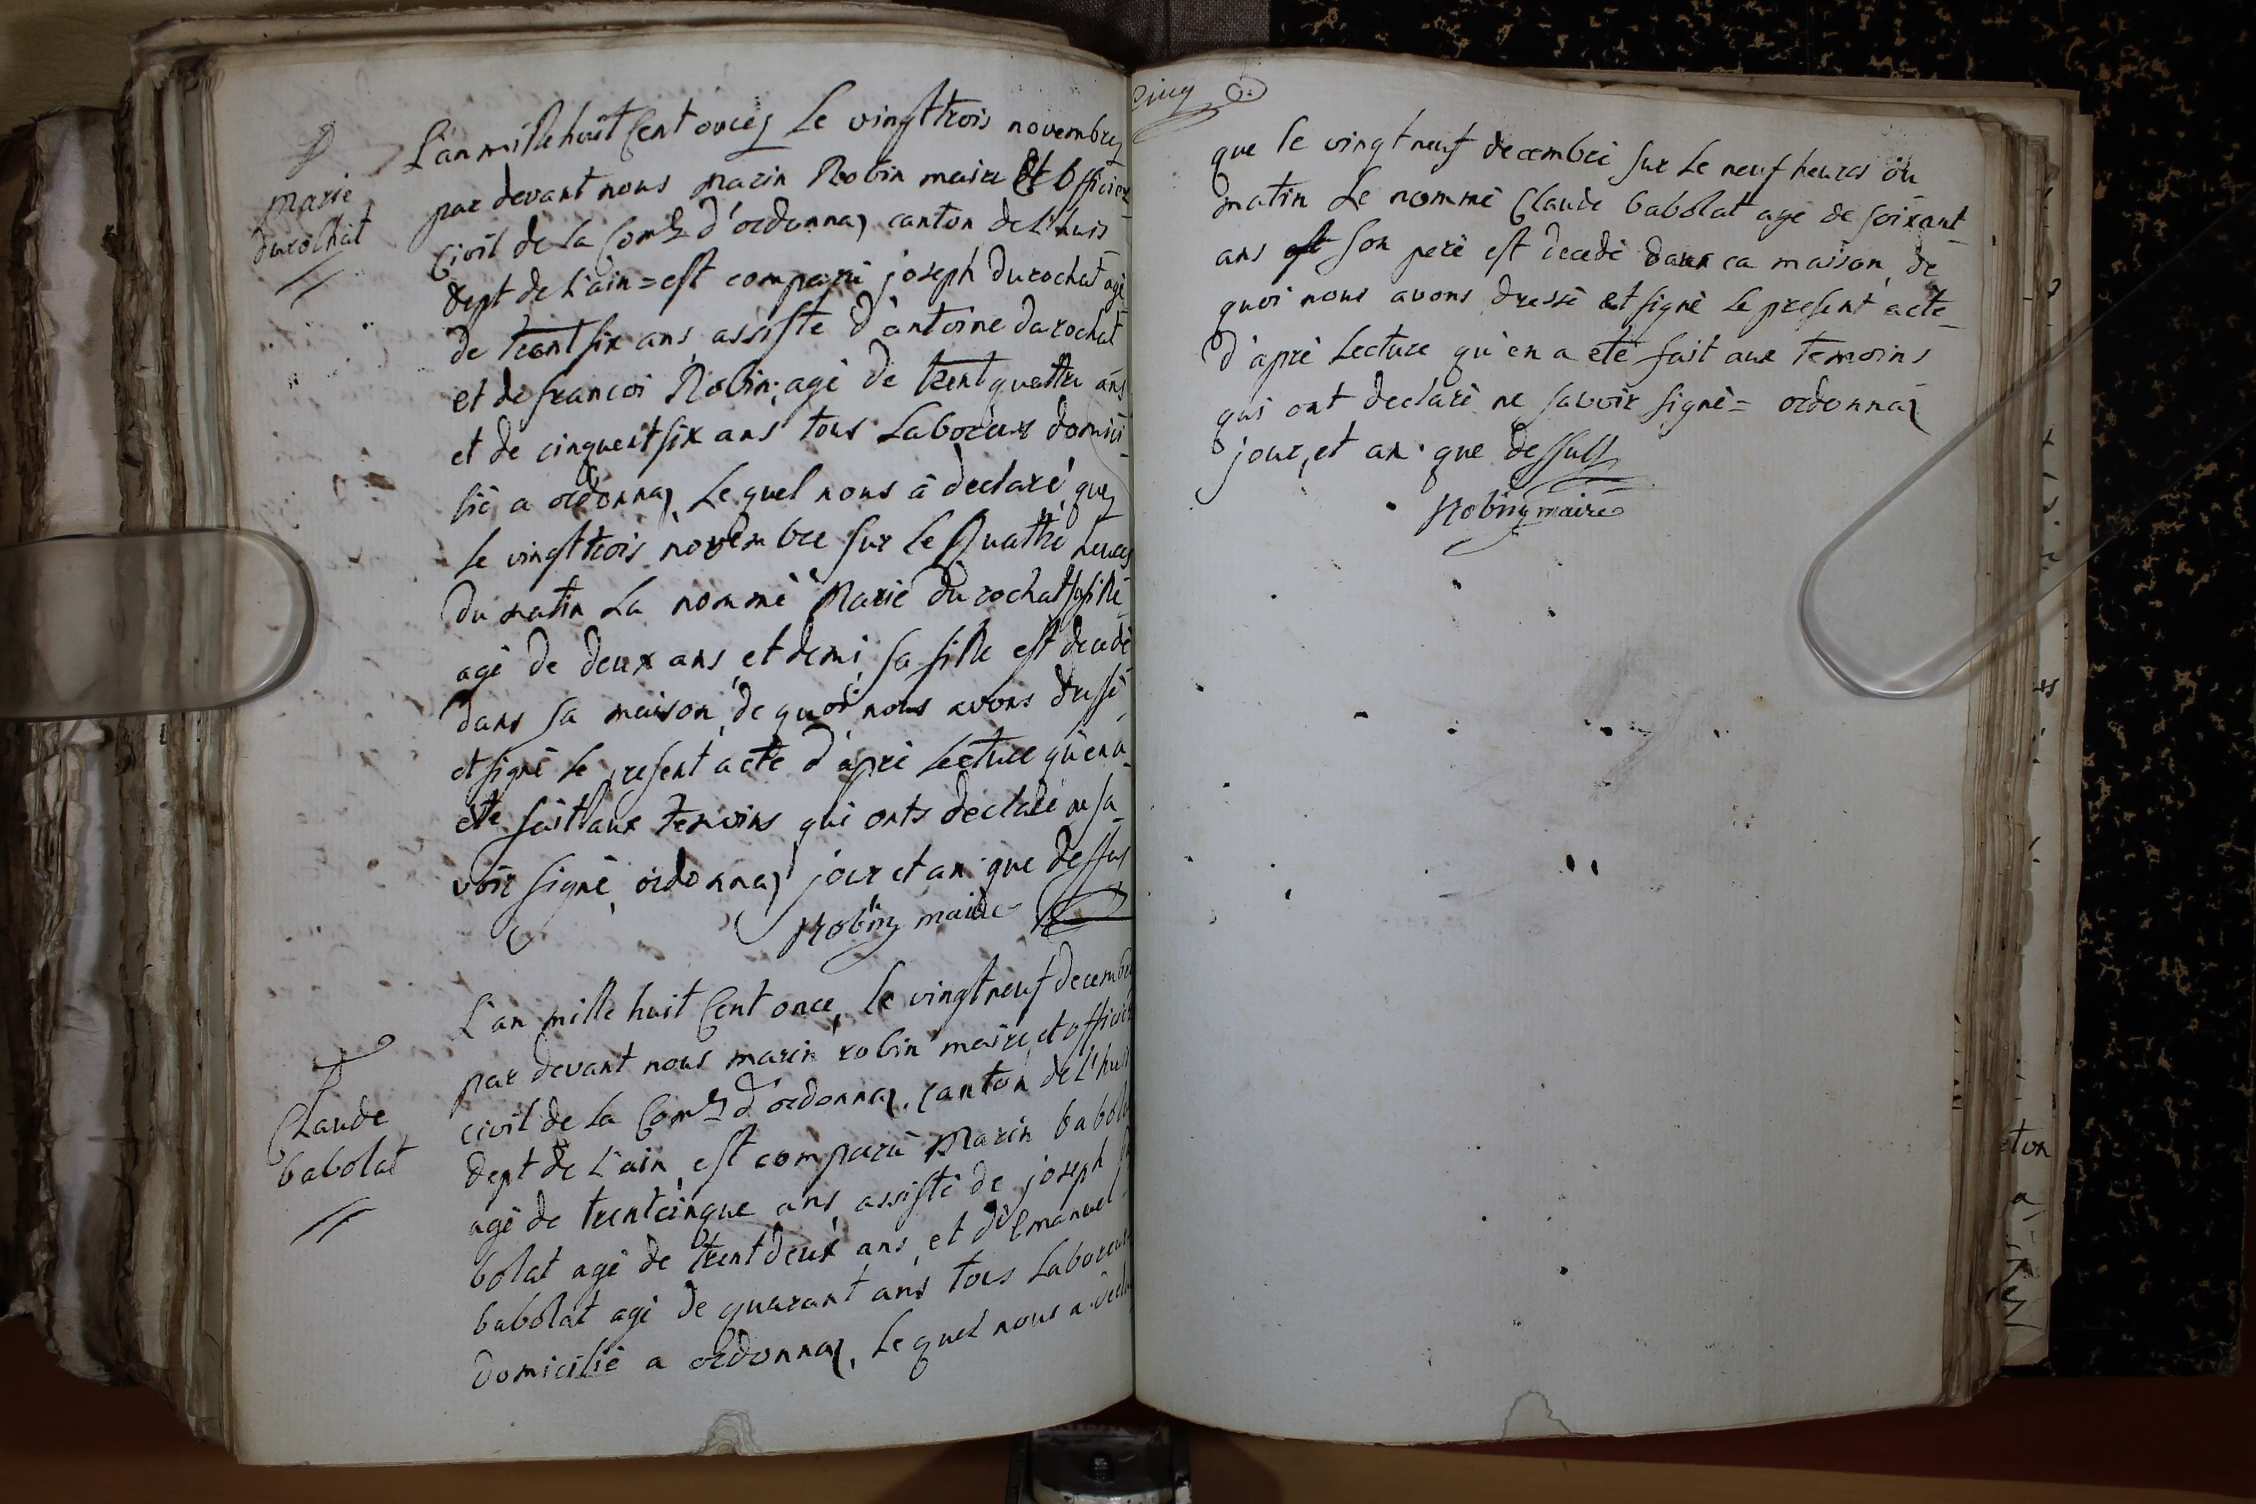 D
Marie
durochat
L'an mille huit Cent onces Le vingt trois novembres
par devant nous Marin Robin maire Et Officier
Civil de la Com.e d'ordonnaz canton de L'huis
dept de L'ain = est comparu joseph Durochat agé
de trent six ans assisté d'antoine durochat
et de francoi Robin; agé de trent quattre ans
et de cinquent six ans tous Laboreurs domici
lié a ordonnaz Le quel nous a declaré ques
le vingt trois novembre sur le Quattre heures
du matin La nommé Marie durochat sa fille
agé de deux ans et demi sa fille est decedé
dans sa maison de quoi nous avons dressé
et signé le present acte d'apré Lecture qu'en a
eté fait aux temoins qui onts declaré ne sa-
voir signé ordonnaz jour et an que dessus
Robin maire
D
Claude
babolat
L'an mille huit Cent once, le vingt neuf decembre
par devant nous marin robin maire et officier
civil de la Com.e d'ordonnaz, canton de L'huis
dept de L'ain est comparu Marin babolat
agé de trent cinque ans assisté de joseph
bolat agé de trent deux ans et de Emanuel
babolat agé de quarant ans tous Laboreurs
domicilié a ordonnaz, Le quel nous a decla
cinq
que le vingt neuf decembre sur Le neuf heures du
matin Le nommé Claude babolat agé de soixant
ans son peré est decedé dans ca maison de
quoi nous avons dressé et signé Le present acte
d'apré Lecture qu'en a eté fait aux temoins
qui ont declaré ne savoir signé = ordonnaz
jour, et an que dessus
Robin maire